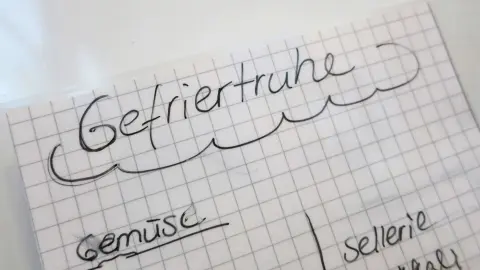 Gefriertruhe
Gemüse
Sellerie